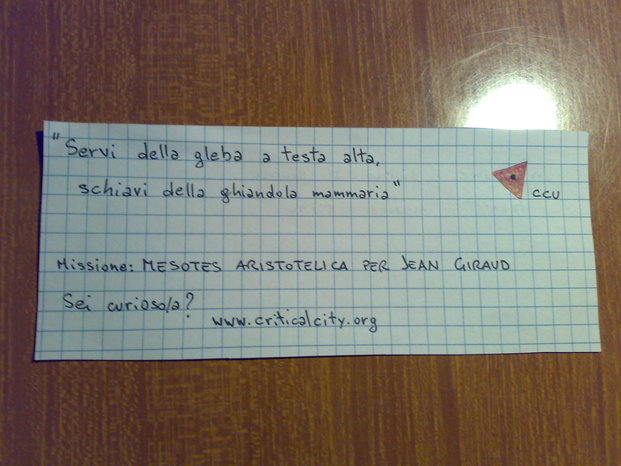 "Servi della gleba a testa alta,
schiavi della ghiandola mammaria"
CCU
Missione: MESOTES ARISTOTELICA PER JEAN GIRAUD
Sei curioso/a?
www.criticalcity.org